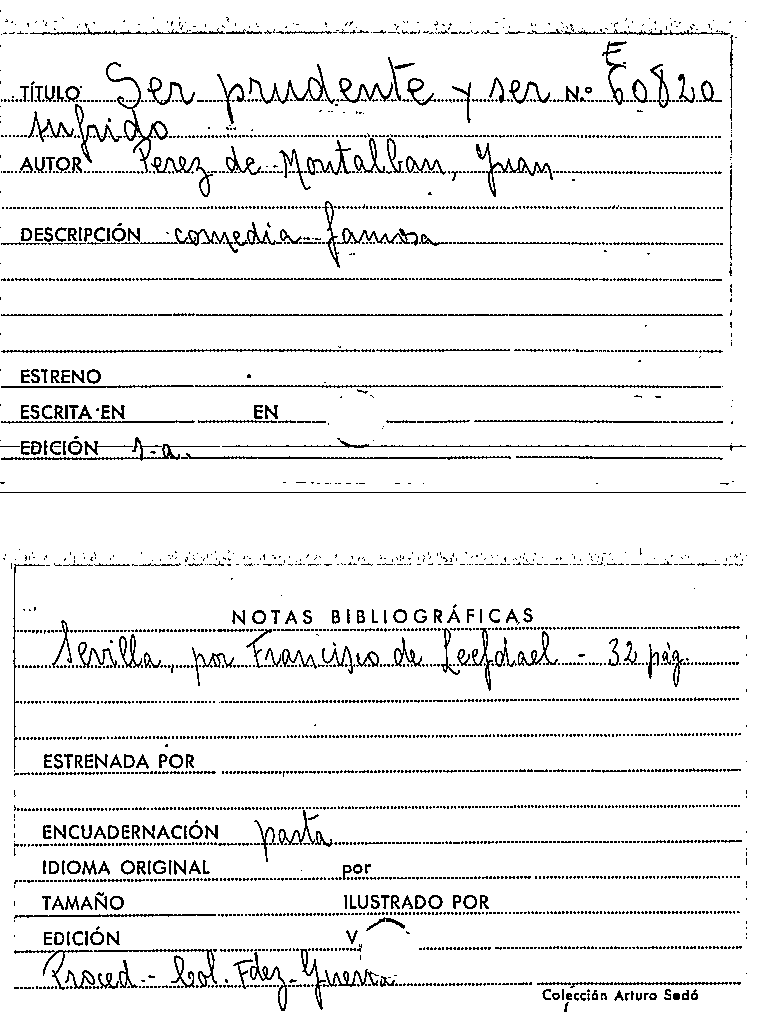 E
TÍTULO Ser prudente y ser N.º 60820
sufrido
AUTOR Perez de Montalban, Juan
DESCRIPCIÓN comedia famosa
ESTRENO
ESCRITA EN EN
EDICIÓN s-a.
NOTAS BIBLIOGRÁFICAS
Sevilla, por Francisco de Leefdael - 32 pág.
ESTRENADA POR
ENCUADERNACIÓN pasta
IDIOMA ORIGINAL por
TAMAÑO ILUSTRADO POR
EDICIÓN V.
Proced.- Col. Fdez-Guerra
Colección Arturo Sedó